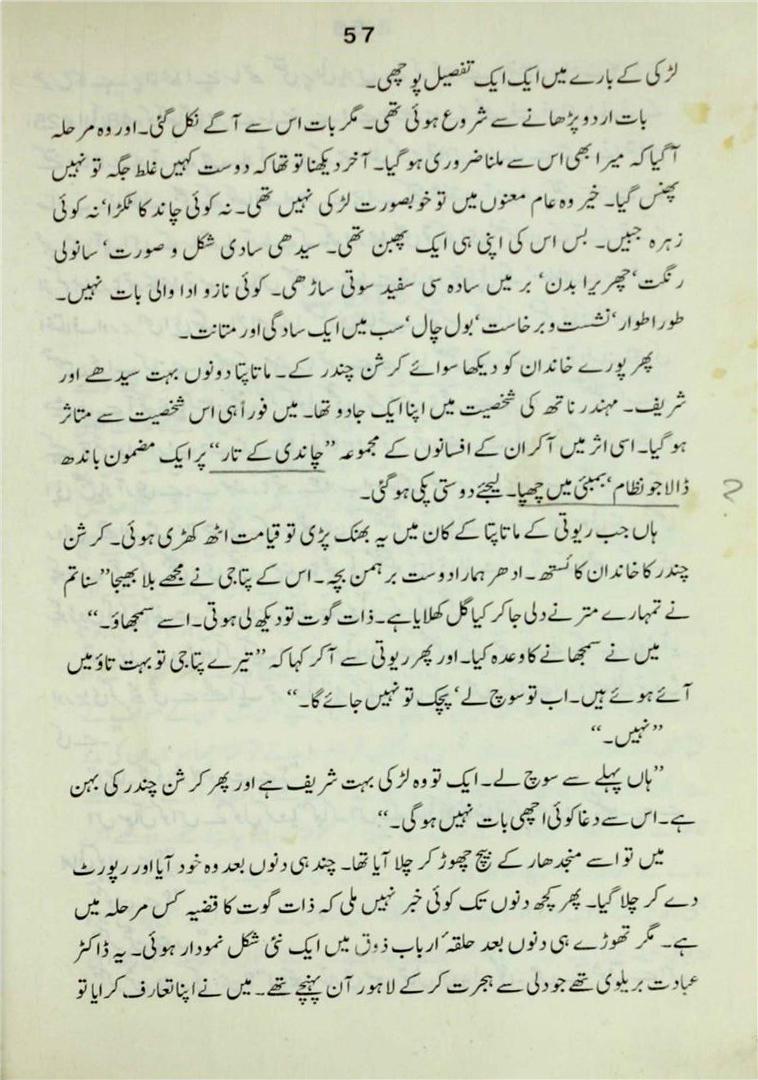 57
لڑکی کے بارے میں ایک ایک تفصیل پوچھی۔
بات اردو پڑھانے سے شروع ہوئی تھی۔ مگر بات اس سے آگے نکل گئی۔ اور وہ مرحلہ
آگیا کہ میرا بھی اس سے ملنا ضروری ہو گیا۔ آخر دیکھنا تو تھا کہ دوست کہیں غلط جگہ تو نہیں
پھنس گیا۔ خیر وہ عام معنوں میں تو خوبصورت لڑکی نہیں تھی۔ نہ کوئی چاند کا ٹکڑا‘ نہ کوئی
زہرہ جبیں۔ بس اس کی اپنی ہی ایک پھبن تھی۔ سیدھی سادی شکل و صورت‘ سانولی
رنگت‘ چھریرا بدن‘ بر میں سادہ سی سفید سوتی ساڑھی۔ کوئی نازو ادا والی بات نہیں۔
طور اطوار‘ نشست و برخاست‘ بول چال‘ سب میں ایک سادگی اور متانت۔
پھر پورے خاندان کو دیکھا سوائے کرشن چندر کے۔ ماتا پتا دونوں بہت سیدھے اور
شریف۔ مہندر ناتھ کی شخصیت میں اپنا ایک جادو تھا۔ میں فوراً ہی اس شخصیت سے متاثر
ہو گیا۔ اسی اثر میں آکر ان کے افسانوں کے مجموعہ ”چاندی کے تار“ پر ایک مضمون باندھ
ڈالا جو نظام‘ بمبئی میں چھپا۔ لیجئے دوستی پکی ہو گئی۔ ?
ہاں جب ریوتی کے ماتا پتا کے کان میں یہ بھنک پڑی تو قیامت اٹھ کھڑی ہوئی۔ کرشن
چندر کا خاندان کائستھ۔ ادھر ہمارا دوست برہمن بچہ۔ اس کے پتا جی نے مجھے بلا بھیجا ”سنا تم
نے تمہارے متر نے دلی جا کر کیا گل کھلایا ہے۔ ذات گوت تو دیکھ لی ہوتی۔ اسے سمجھاؤ۔“
میں نے سمجھانے کا وعدہ کیا۔ اور پھر ریوتی سے آکر کہا کہ ”تیرے پتا جی تو بہت تاؤ میں
آئے ہوئے ہیں۔ اب تو سوچ لے‘ پچک تو نہیں جائے گا۔“
”نہیں۔“
”ہاں پہلے سے سوچ لے۔ ایک تو وہ لڑکی بہت شریف ہے اور پھر کرشن چندر کی بہن
ہے۔ اس سے دغا کوئی اچھی بات نہیں ہوگی۔“
میں تو اسے منجدھار کے بیچ چھوڑ کر چلا آیا تھا۔ چند ہی دنوں بعد وہ خود آیا اور رپورٹ
دے کر چلا گیا۔ پھر کچھ دنوں تک کوئی خبر نہیں ملی کہ ذات گوت کا قضیہ کس مرحلہ میں
ہے۔ مگر تھوڑے ہی دنوں بعد حلقۂ ارباب ذوق میں ایک نئی شکل نمودار ہوئی۔ یہ ڈاکٹر
عبادت بریلوی تھے جو دلی سے ہجرت کر کے لاہور آن پہنچے تھے۔ میں نے اپنا تعارف کرایا تو